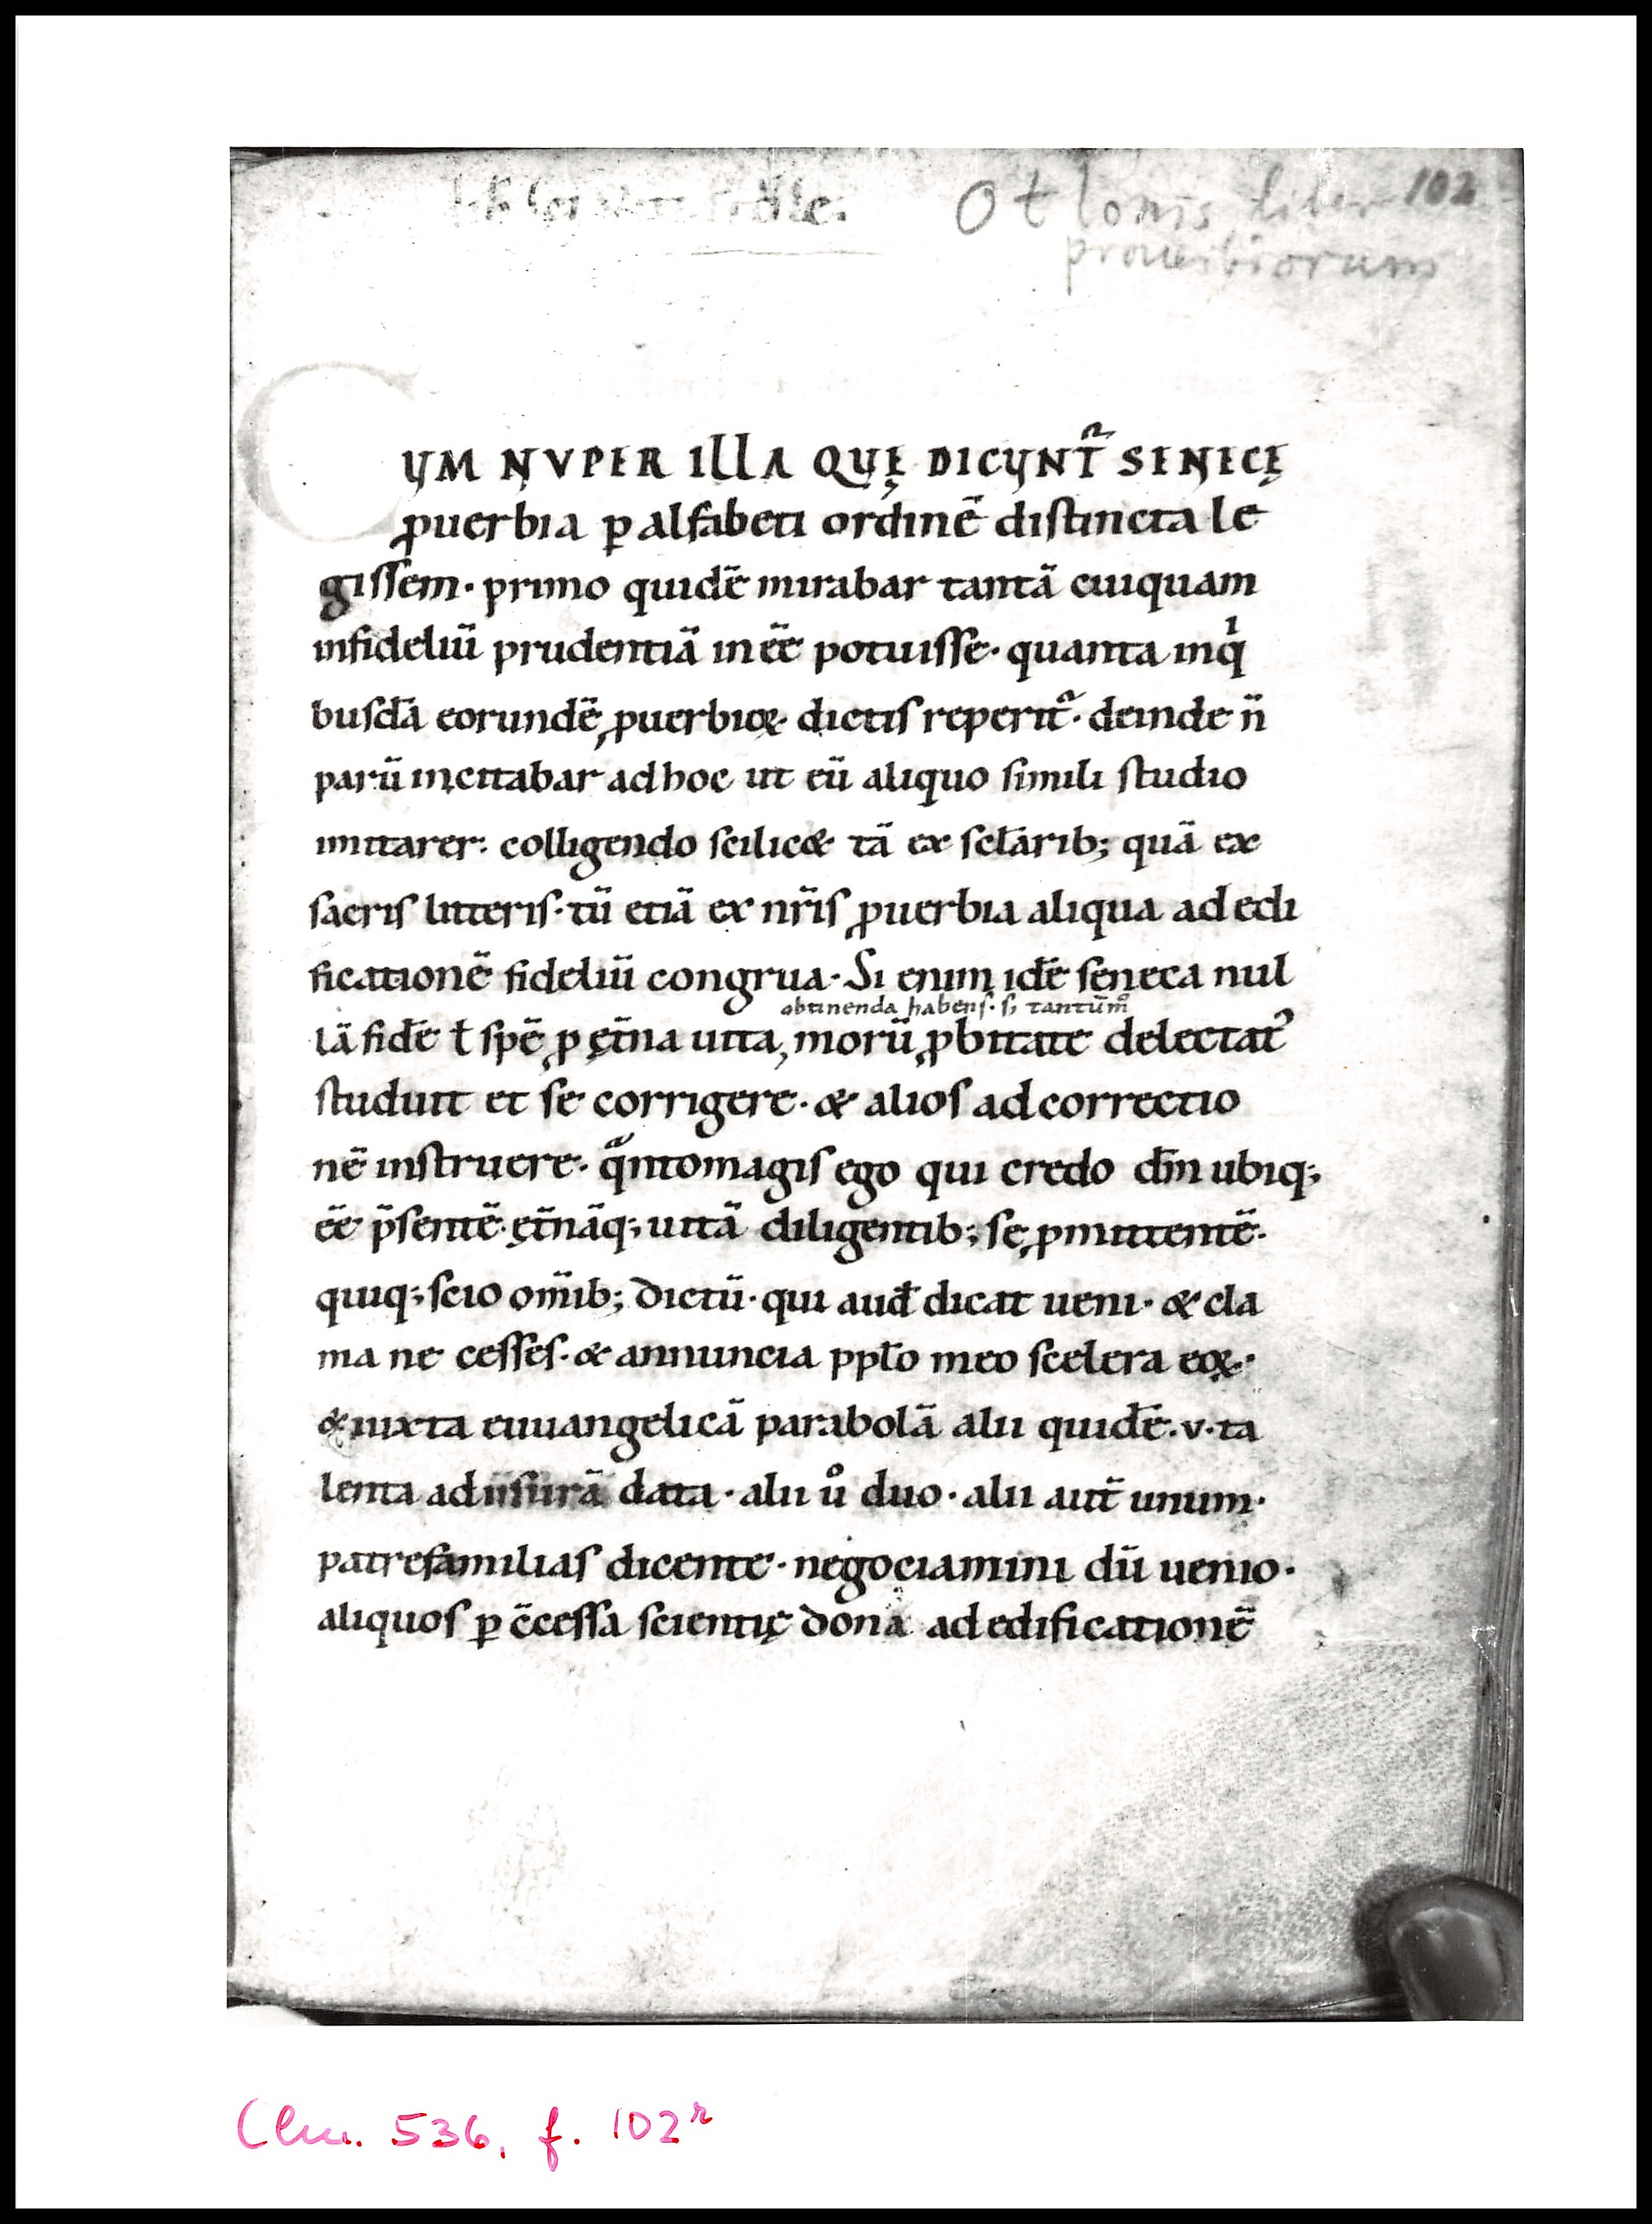 Otlonis liber 102
prouerbiorum
CUM NUPER ILLA QUĘ DICUNT᷑ SENECĘ
ꝓuerbia ꝑ alfabeti ordinē distincta le
gissem· primo quidē mirabar tantā cuiquam
infideliū prudentiā in eē potuisse· quanta in qͥ
busdā eorundē ꝓuerbioꝝ dictis reperit᷑· deinde n̄
parū incitabar ad hoc ut eū aliquo simili studio
imitarer: colligendo scilic& tā ex sclarib; quā ex
sacris litteris· tū etiā ex nr̄is ꝓuerbia aliqua ad edi
ficationē fideliū congrua· Si enim idē seneca nul
obtinenda habens· s; tantūmͦ
lā fidē ł spē ꝓ ęt̄na uita, morū ꝓbitate delectat᷑
studuit et se corrigere· & alios ad correctio
nē instruere· qᷓntomagis ego qui credo dm̄ ubiq;
eē p̄sentē· ęt̄nāq; uitā diligentib; se ꝓmittentē·
quiq; scio om̄ib; dictū· qui aud̄ dicat ueni· & cla
ma ne cesses· & annuncia ppl̄o meo scelera eoꝝ·
& iuxta euuangelicā parabolā alii quidē· v· ta
lenta ad usurā data· alii uͦ duo· alii aut̄ unum·
patrefamilias dicente· negociamini dū uenio·
aliquos ꝑ c̄cessa scientię dona ad edificationē
Clm. 536, f. 102ʳ